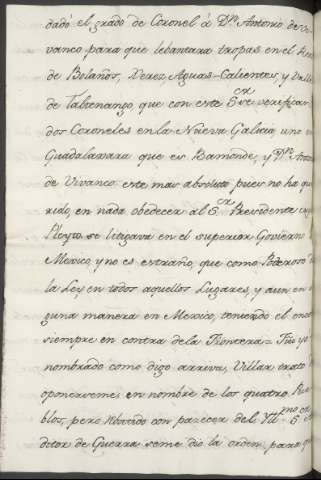 dadó el grado de Coronel á Dⁿ Antonio de Vi
vanco para que lebantara tropas en el
de Bolaños, Xerez, Aguas-Calientes, y Valle
de Taltenango, que con este Sᵒʳ se verifican
dos Coroneles en la Nueva Galicia, uno en
Guadalaxara que es Bamonde, y Dⁿ Anto
de Vivanco este mas absoluto pues no ha que
rido, en nada obedecer al Sᵒʳ Presidente cuyo
Pleyto se litigava en el superior Govierno
Mexico, y no es estraño, que como Poderoso dé
la Ley en todos aquellos Lugares, y aun en al
guna manera en Mexico, teniendo el
siempre en contra de la Frontera = Fui yo
nombrado como digo arriva, Villar trató
oponerseme en nombre de los quatro Pue
blos, pero librado con parecer del Yllᵐᵒ Sᵒʳ Au
ditor de Guerra seme dió la orden para q